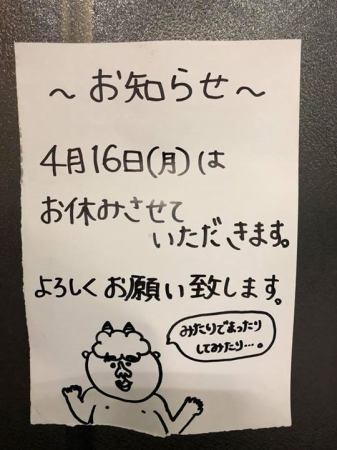 ～お知らせ～
4月16日(月)は
お休みさせて
いただきます。
よろしくお願い致します。
みたりでまったり
してみたり…。